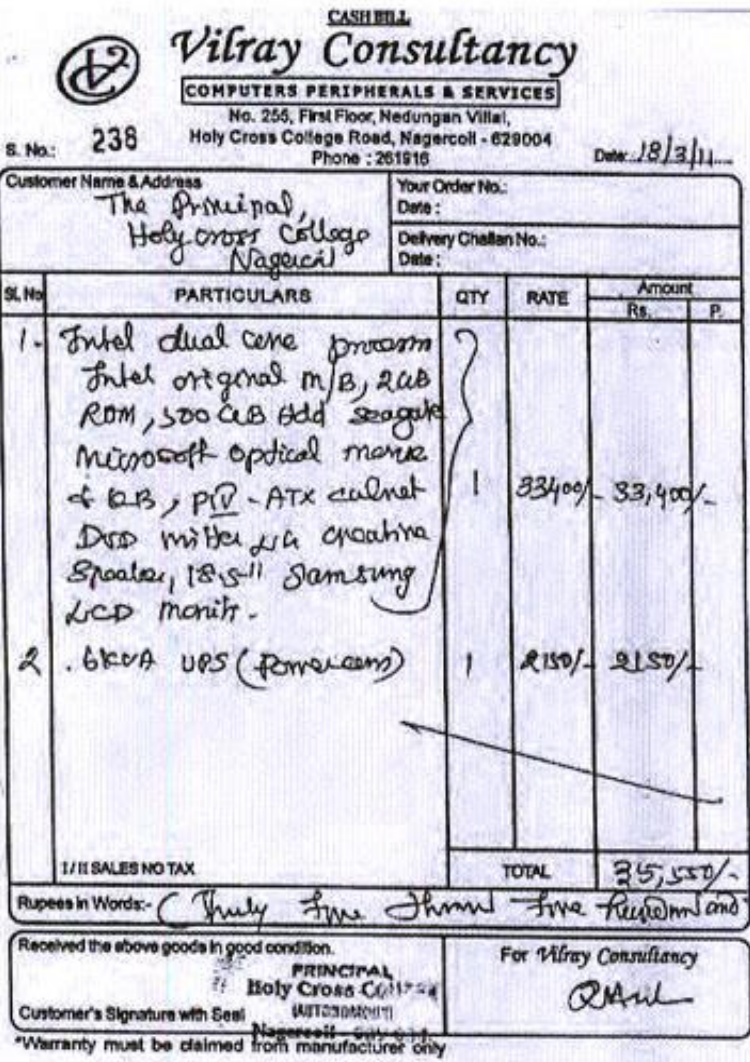 CASH BILL
Vilray Consultancy
COMPUTERS PERIPHERALS & SERVICES
No. 255, First Floor, Nedungan Villai,
Holy Cross College Road, Nagercoil - 629004
Phone : 261916
S. No.: 238
Date: 18/3/11
Customer Name & Address
The Principal,
Holy cross College
Nagercoil
Your Order No.:
Date :
Delivery Challan No.:
Date :
Sl. No PARTICULARS QTY RATE Amount
Rs. P.
1. Intel dual core
Intel original M/B, 2GB
ROM, 500 GB Hdd seagate
Microsoft optical
& KB, PIV - ATX
DVD creative
Speaker, 18.5" Samsung
LCD monitr.
1 33400/- 33,400/-
2 .6KVA UPS (Powercom) 1 2150/- 2150/-
I / II SALES NO TAX TOTAL 35,550/-
Rupees in Words:- ( Five Five Hundred and
Received the above goods in good condition.
PRINCIPAL
Holy Cross College
(AUTONOMOUS)
Customer's Signature with Seal
For Vilray Consultancy
*Warranty must be claimed from manufacturer only